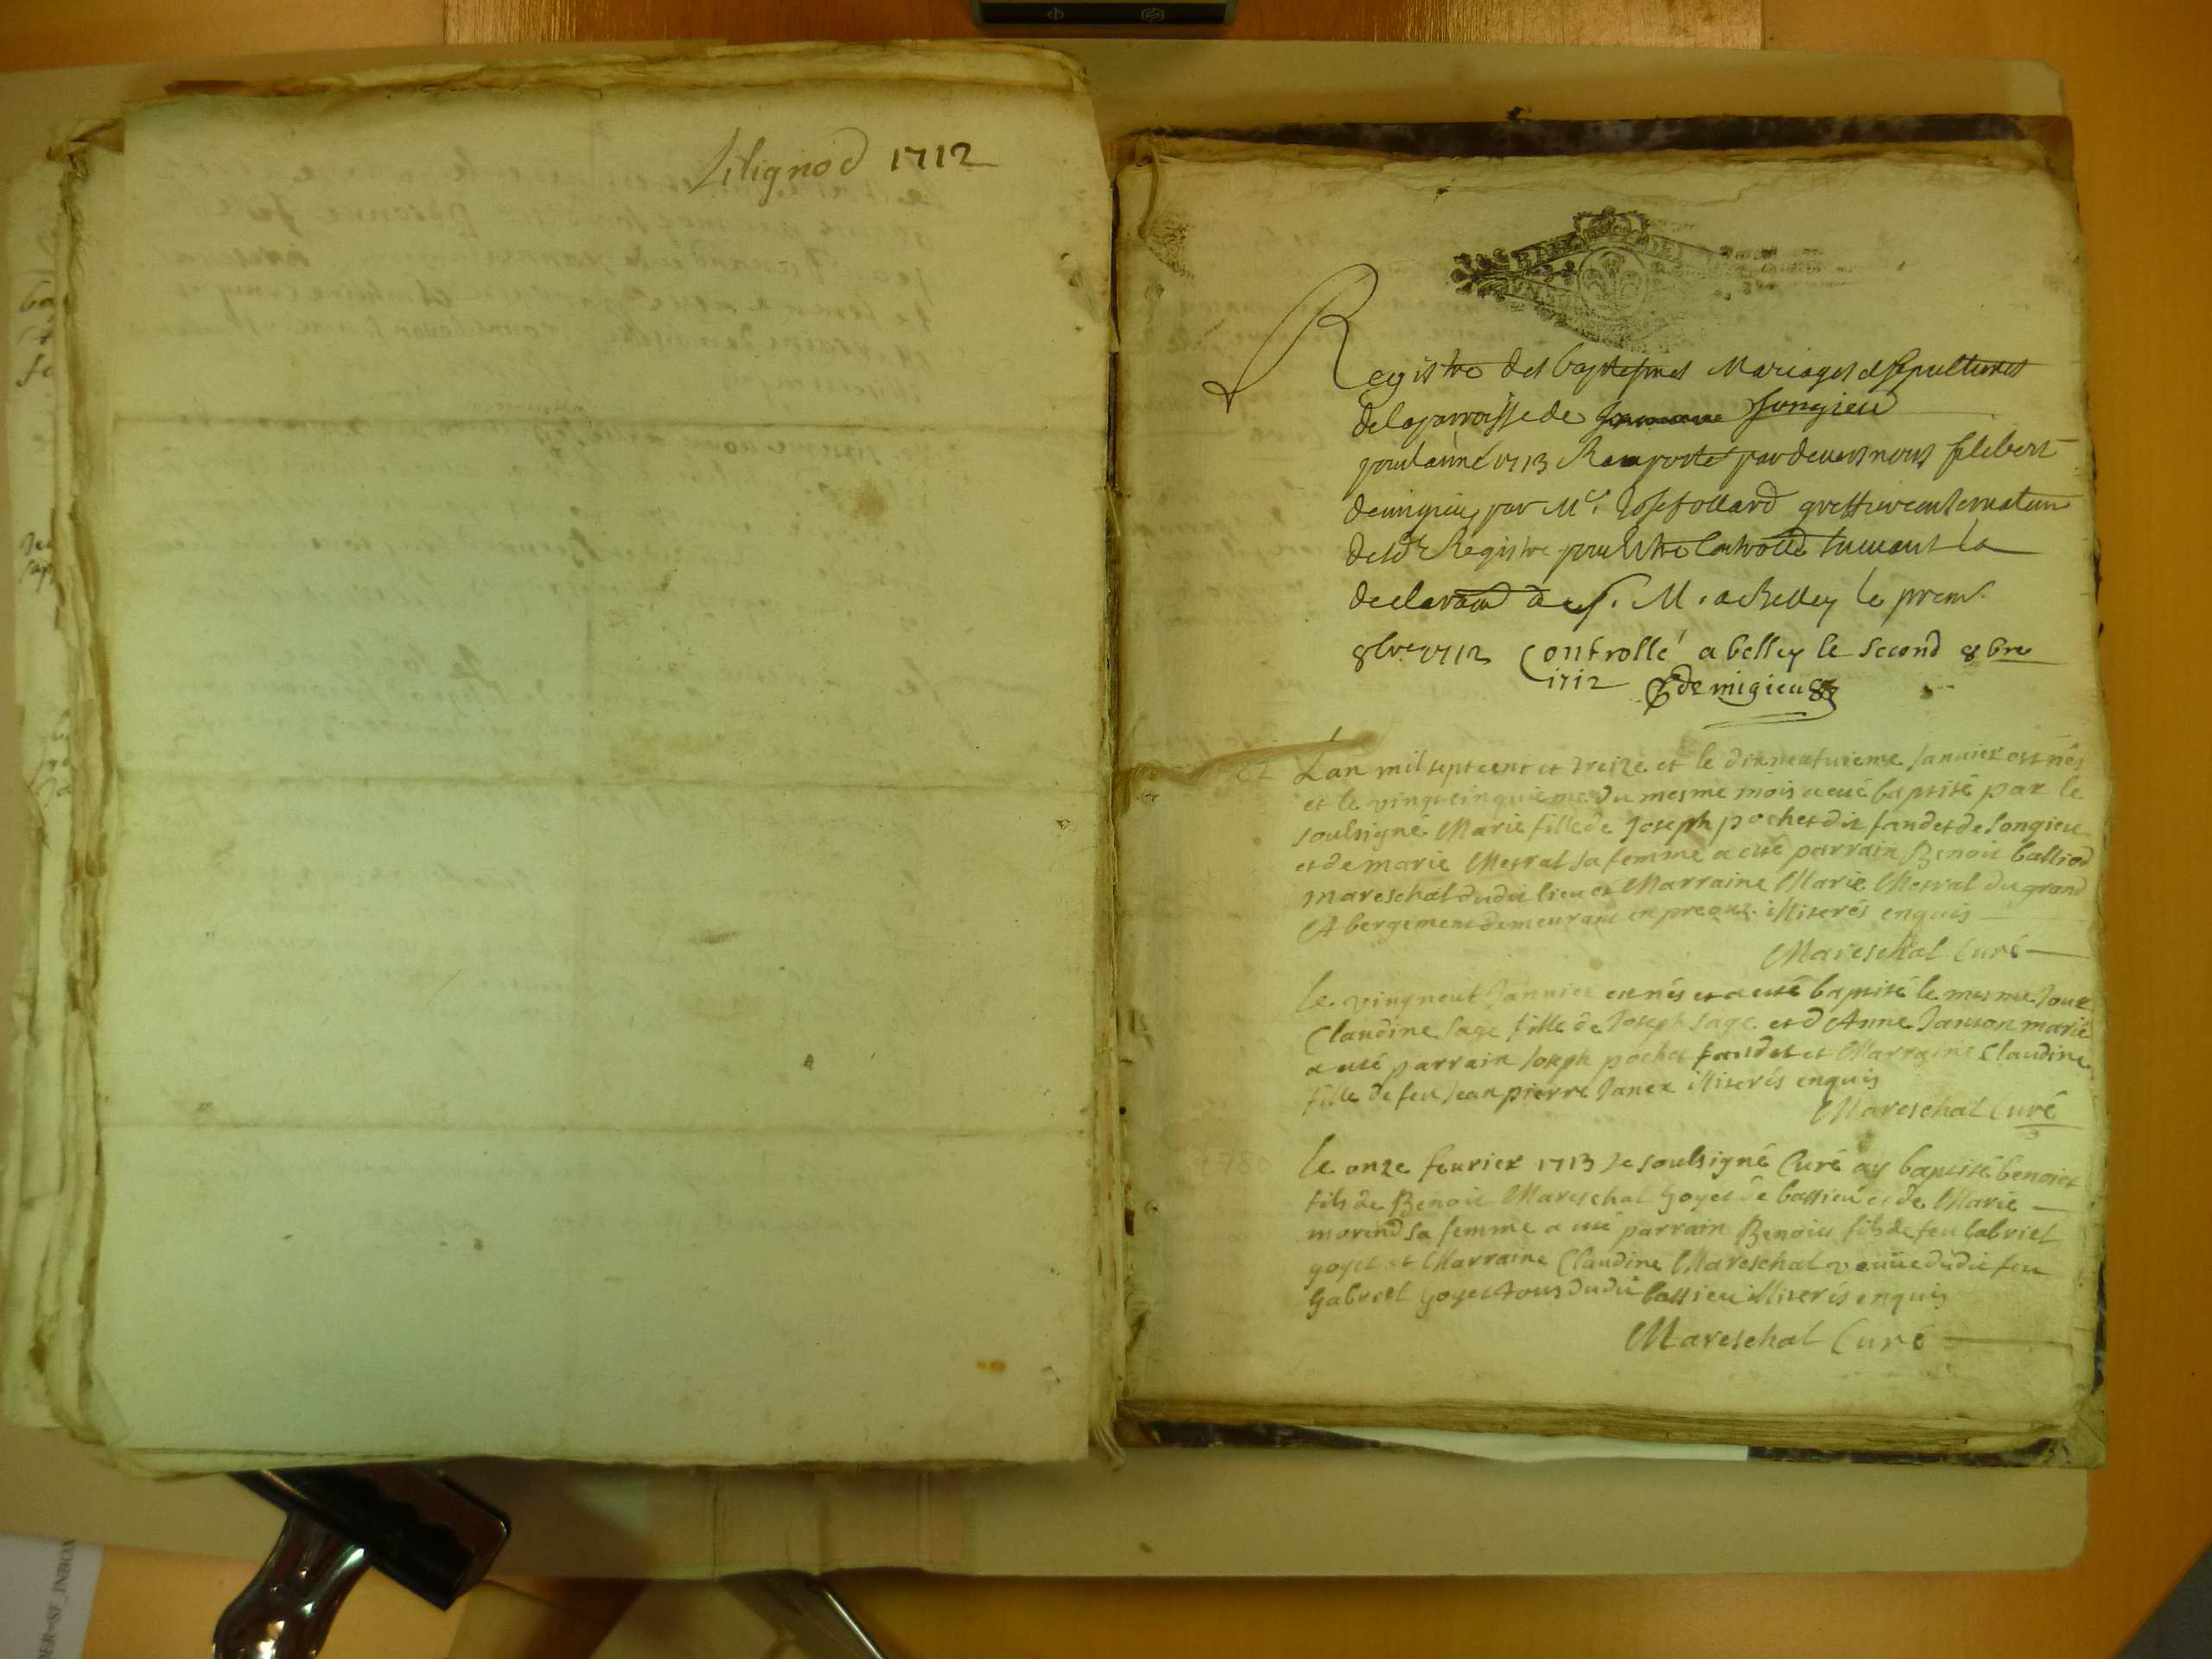 Lilignod 1712
Registre des baptesmes Mariages et sepultures
de la parroisse de Songieu
pour lanné 1713 Raaporté par devers nous filibert
demigieu par Mr. Josef ollard greffier conservateur
desdt Registre pour Estre Controllé suivant la
declaraon de s. M. a Belley le prem.
8bre 1712 Controllé a belley le second 8bre
1712 demigieu
Lan mil sept cent et treize et le dixneufuieme Januier est nés
et le vingt cinquieme du mesme mois a eté baptisé par le
soulsigné Marie fille de Joseph pochet dit fandet de songieu
et de marie Mesral sa femme a eté parrain Benoit balliod
mareschal dudit lieu et Marraine Marie Mesral du grand
Abergement demeurant en illiterés enquis
Mareschal Curé
le vingneuf Januier est nés et a eté baptisé le mesme Jour
Claudine Sage fille de Joseph Sage et d'Anne Janson marié
a eté parrain Joseph pochet fandet et Marraine Claudine
fille de feu Jean pierre Janex illiterés enquis
Mareschal Curé
le onze feurier 1713 Je soulsigné Curé ay baptisé benoict
fils de Benoit Mareschal Goyet de bassieu et de Marie
morend sa femme a eté parrain Benoict fils de feu Gabriel
goyet et Marraine Claudine Mareschal veuüe dudit feu
Gabriel Goyet tous dudit bassieu illiterés enquis
Mareschal Curé